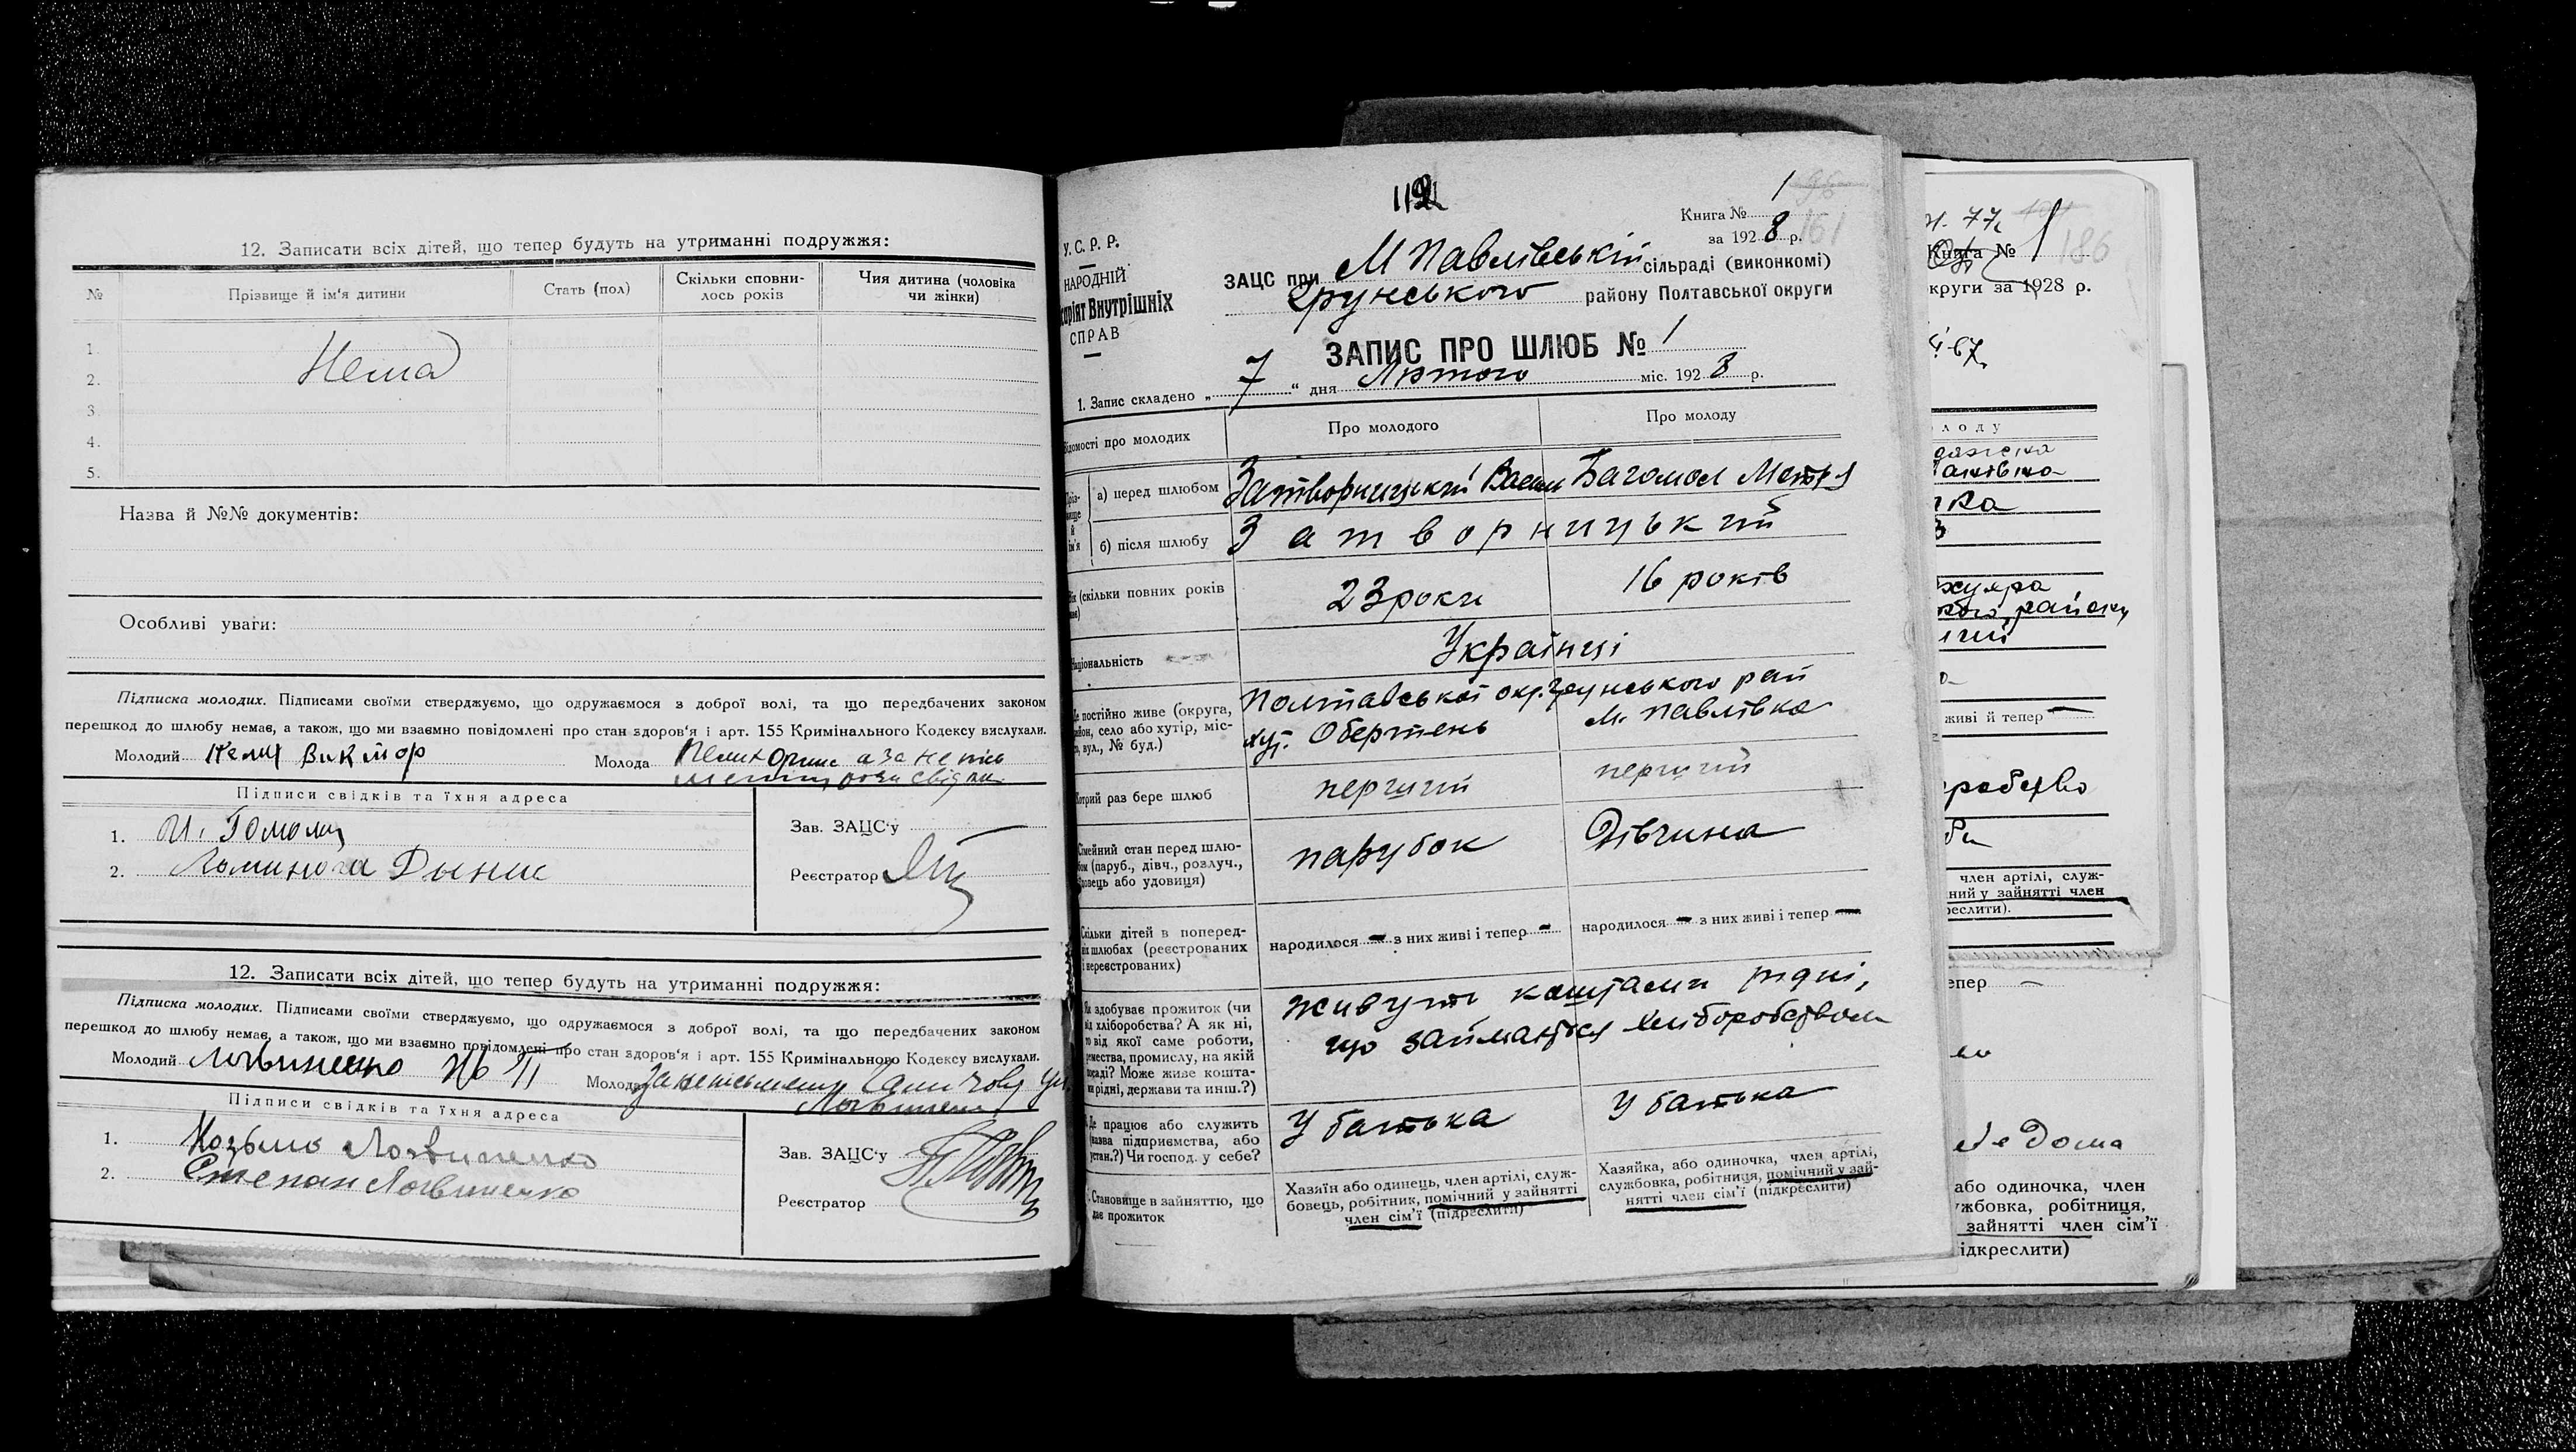 12. Записати всіх дітей, що тепер будуть на утриманні подружжя:
№ Прізвище й ім'я дитини Стать (пол) Скільки сповни-лось років Чия дитина (чоловіка чи жінки)
1.
2. Нема
3.
4.
5.
Назва й №№ документів:
Особливі уваги:
Підписка молодих. Підписами своїми стверджуємо, що одружаємося з доброї волі, та що передбачених законом
перешкод до шлюбу немає, а також, що ми взаємно повідомлені про стан здоров'я і арт. 155 Кримінального Кодексу вислухали.
Молодий Келих Виктор Молода
Підписи свідків та їхня адреса
1. И. Гомоляц
2. Ломинога Дынис
Зав. ЗАЦС'у
Реєстратор
12. Записати всіх дітей, що тепер будуть на утриманні подружжя:
Підписка молодих. Підписами своїми стверджуємо, що одружаємося з доброї волі, та що передбачених законом
перешкод до шлюбу немає, а також, що ми взаємно повідомлені про стан здоров'я і арт. 155 Кримінального Кодексу вислухали.
Молодий Логвиненко Молода
Підписи свідків та їхня адреса
1. Козьма Логвиненко
2. Степан Логвиненко
Зав. ЗАЦС'у
Реєстратор
112
Книга № 1
за 1928 р. 161
У. С. Р. Р.
НАРОДНІЙ
Внутрішніх
СПРАВ
ЗАЦС при М Павлівській сільраді (виконкомі)
Грунського району Полтавської округи
ЗАПИС ПРО ШЛЮБ № 1
1. Запис складено „ 7 “ дня Лютого міс. 1928 р.
про молодих Про молодого Про молоду
а) перед шлюбом Затворницький Васил Багомол Мотря
б) після шлюбу Затворницький
(скільки повних років 23 роки 16 років
Національність Українці
постійно живе (округа, село або хутір, міс- вул., № буд.) Полтавської окр. Грунського рай
хут. Обертень М. Павлівка
Котрий раз бере шлюб перший перший
Сімейний стан перед шлю-бом (паруб., дівч., розлуч., вдовець або удовиця) парубок Дівчина
Скільки дітей в поперед- шлюбах (реєстрованих і нереєстрованих) народилося - з них живі і тепер - народилося - з них живі і тепер -
здобуває прожиток (чи від хліборобства? А як ні, то від якої саме роботи, ремества, промислу, на якій посаді? Може живе кошта- рідні, держави та инш.?) живуть коштами рідні,
що займається хліборобством
Де працює або служить (назва підприємства, або устан.?) Чи господ. у себе? У батька У батька
Становище в зайняттю, що дає прожиток
Хазяїн або одинець, член артілі, служ-бовець, робітник, помічний у зайнятті член сім'ї (підреслити)
Хазяйка, або одиночка, член артілі, службовка, робітниця, помічний у зай-нятті член сім'ї (підкреслити)
77
Книга № 1 186
округи за 1928 р.
лоду
живі й тепер
член артілі, служ-
ний у зайнятті член
реслити).
тепер
дома
або одиночка, член
жбовка, робітниця,
зайнятті член сім'ї
ідкреслити)